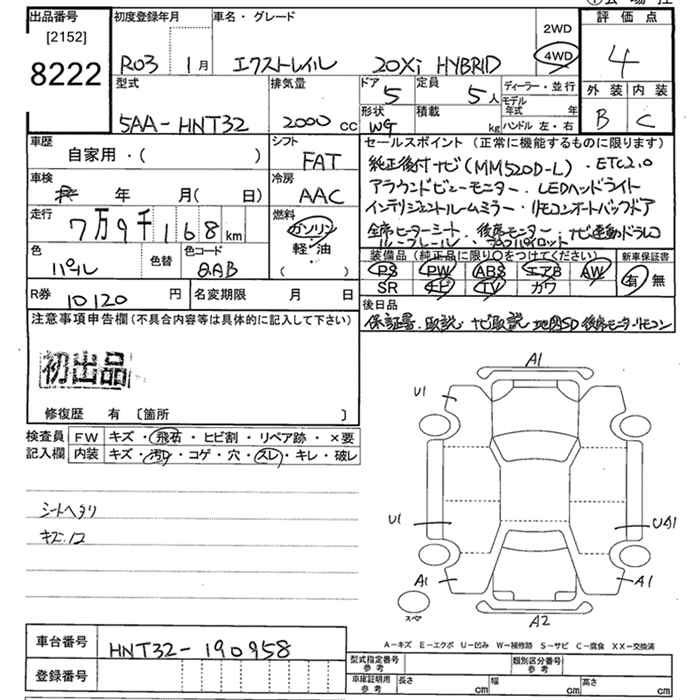 出品番号
[2152]
8222
初度登録年月
R03 1月
車名・グレード
エクストレイル 20Xi HYBRID
2WD
4WD
評価点
4
外装 内装
B C
型式
5AA-HNT32
排気量
2000 cc
ドア
5
定員
5人
形状
WG
積載
kg
ディーラー・並行
モデル年式 年
ハンドル 左・右
車歴
自家用・( )
シフト
FAT
車検
年 月( 日)
冷房
AAC
走行
7万9千168km
燃料
ガソリン
軽・油
( )
色
パール
色替
色コード
QAB
R券
10120円
名変期限 月 日
セールスポイント(正常に機能するものに限ります)
純正後付ナビ(MM520D-L)・ETC2.0
アラウンドビューモニター・LEDヘッドライト
インテリジェントルームミラー・リモコンオートバックドア
全席ヒーターシート・後席モニター・ナビ連動ドラレコ
ルーフレール・プロパイロット
装備品(純正品に限り○をつけてください)
新車保証書
PS PW ABS エアB AW
SR ナビ TV カワ
有・無
後日品
保証書・取説・ナビ取説・地図SD・後席モニターリモコン
注意事項申告欄(不具合内容等は具体的に記入して下さい)
初出品
修復歴 有 〔箇所 〕
検査員記入欄
FW キズ・飛石・ヒビ割・リペア跡・×要
内装 キズ・汚れ・コゲ・穴・スレ・キレ・破レ
シートヘタリ
キズ.12
A1
U1
U1
UA1
A1
A1
スペア
A2
A-キズ E-エクボ U-凹み W-補修跡 S-サビ C-腐食 XX-交換済
車台番号
HNT32-190958
登録番号
型式指定番号参考
類別区分番号参考
車庫証明用参考
長さ cm
幅 cm
高さ cm